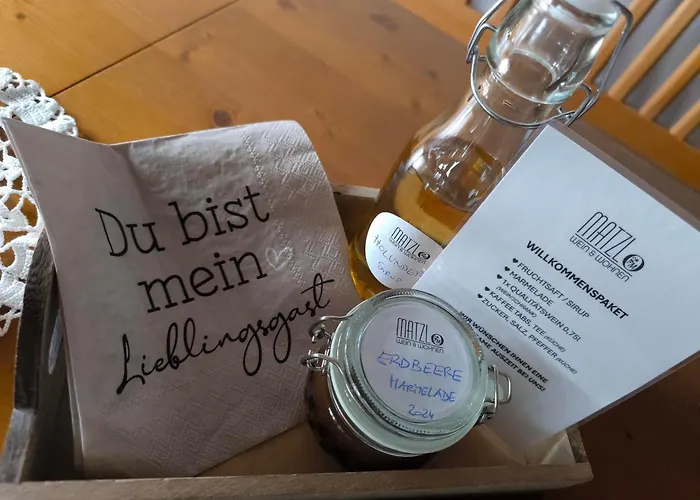 Du bist
mein
Lieblingsgast
HOLUNDER
SIRUP
MATZL
WEIN & WOHNEN
WILLKOMMENSPAKET
♥ FRUCHTSAFT / SIRUP
♥ MARMELADE
♥ 1x QUALITÄTSWEIN 0,75L
♥ KAFFEE TABS, TEE (KÜCHE)
♥ ZUCKER, SALZ, PFEFFER (KÜCHE)
WIR WÜNSCHEN IHNEN EINE
AUSZEIT BEI UNS!
MATZL
WEIN & WOHNEN
ERDBEERE
MARMELADE
2024